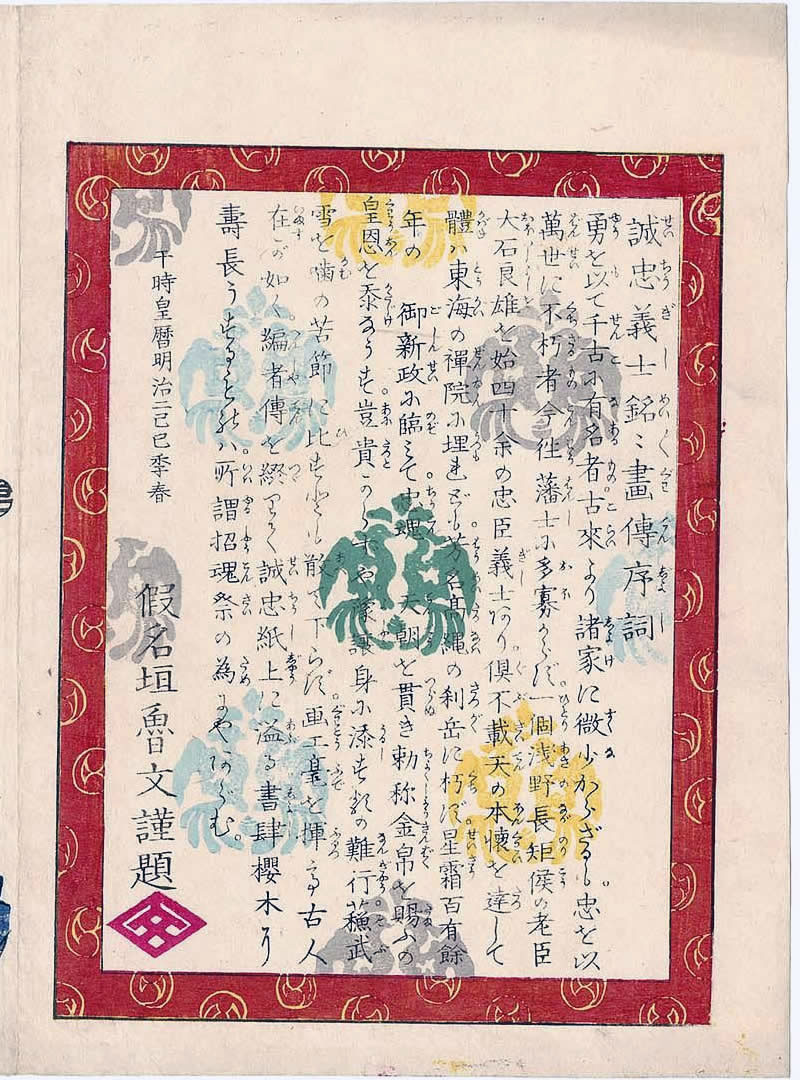 誠忠義士銘々畫傳序詞
勇を以て千古に有名者古來より諸家に微少からざるも忠を以
萬世に不朽者今往藩士に多寡からず一個浅野長矩侯の老臣
大石良雄を始四十余の忠臣義士あり倶不載天の本懐を達して
體ハ東海の禪院に埋れども芳名高縄の利岳に朽ず星霜百有餘
年の 御新政に臨て忠魂 天朝を貫き勅称金帛を賜ふの
皇恩を忝なうす豈貴からずや豫譲身に漆する難行蘓武
雪を噛の苦節に比すとも散て下らず画工毫を揮て古人
在が如く編者傳を終りて誠忠紙上に溢る書肆櫻木り
壽長うするものハ所謂招魂祭の為にやあらむ。
干時皇暦明治二己巳季春
假名垣魯文謹題